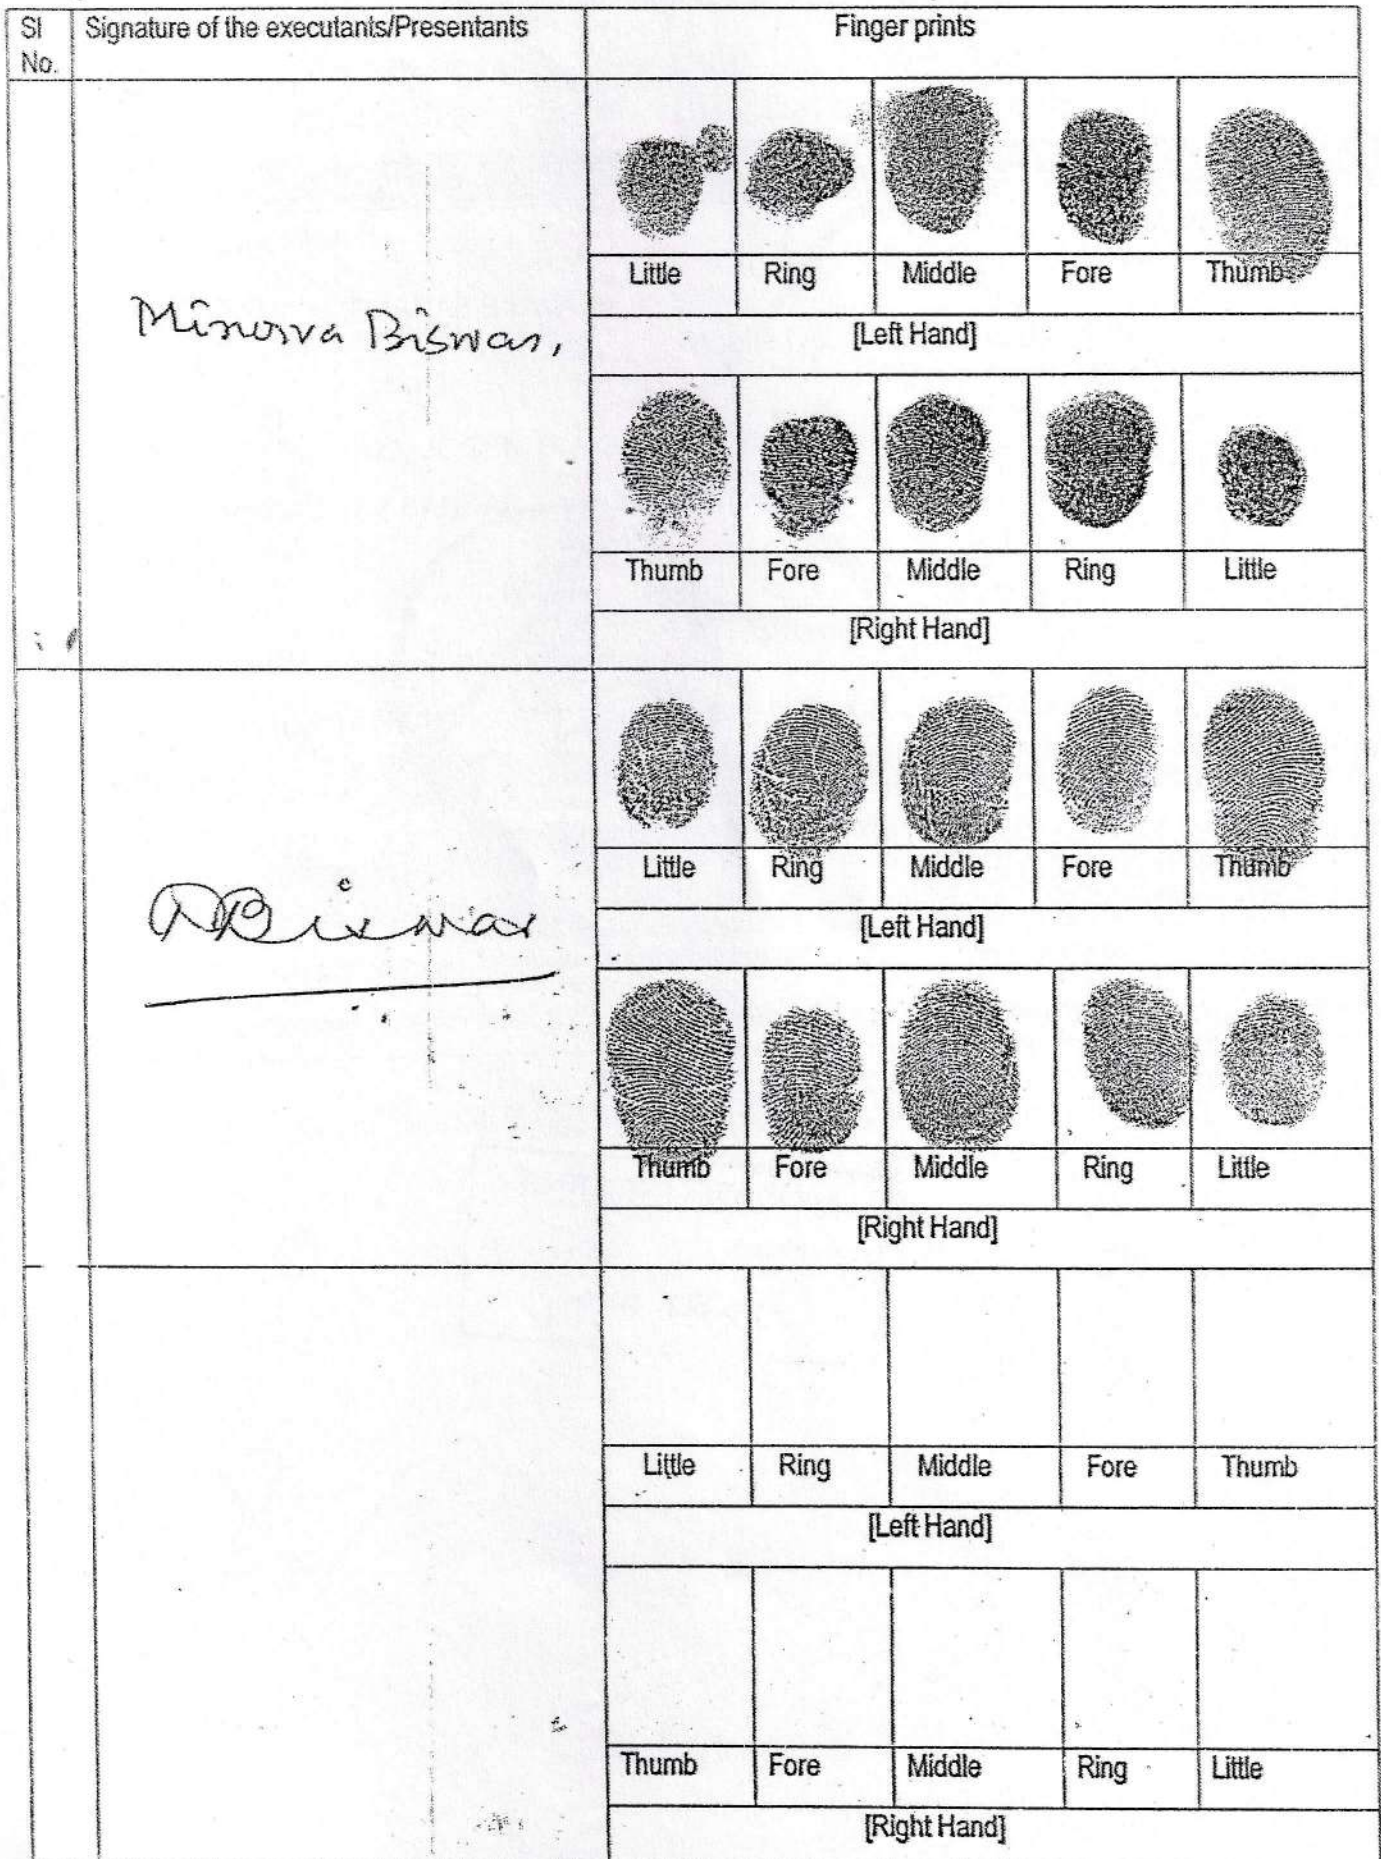 Sl No.
Signature of the executants/Presentants
Finger prints
Little Ring Middle Fore Thumb
[Left Hand]
Minorva Biswas,
Thumb Fore Middle Ring Little
[Right Hand]
Little Ring Middle Fore Thumb
[Left Hand]
Biswas
Thumb Fore Middle Ring Little
[Right Hand]
Little Ring Middle Fore Thumb
[Left Hand]
Thumb Fore Middle Ring Little
[Right Hand]